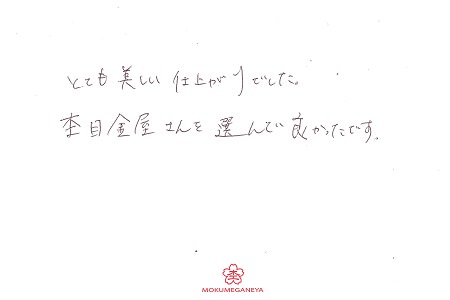 とても美しい仕上がりでした。
杢目金屋さんを選んで良かったです。
杢
MOKUMEGANEYA